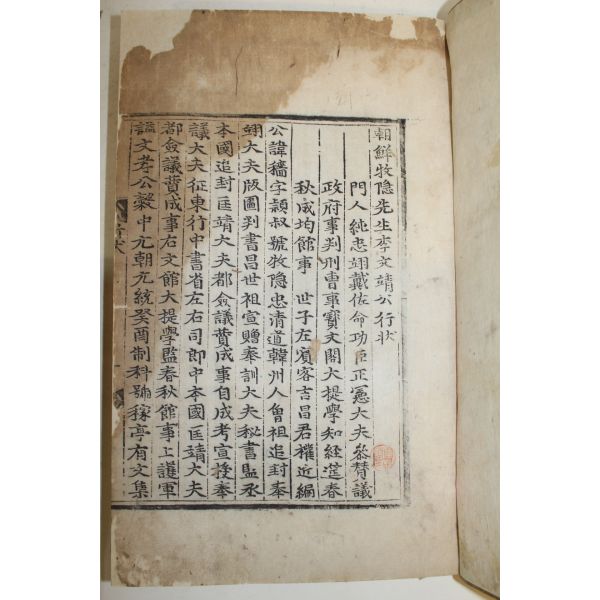 朝鮮牧隐先生李文靖公行状
門人純忠翊戴佐命功臣正憲大夫叅賛議
政府事判刑曹事寳文閣大提學知經筵春
秋成均館事 世子左賓客吉昌君權近編
公諱穡字頴叔號牧隐忠清道韓州人曾祖追封奉
翊大夫版圖判書昌世祖宣贈奉訓大夫秘書監丞
本國追封匡靖大夫都僉議賛成事自成考宣授奉
議大夫征東行中書省左右司郎中本國匡靖大夫
都僉議賛成事右文館大提學監春秋館事上護軍
謚文孝公糓中元朝元統癸酉制科號稼亭有文集
行状